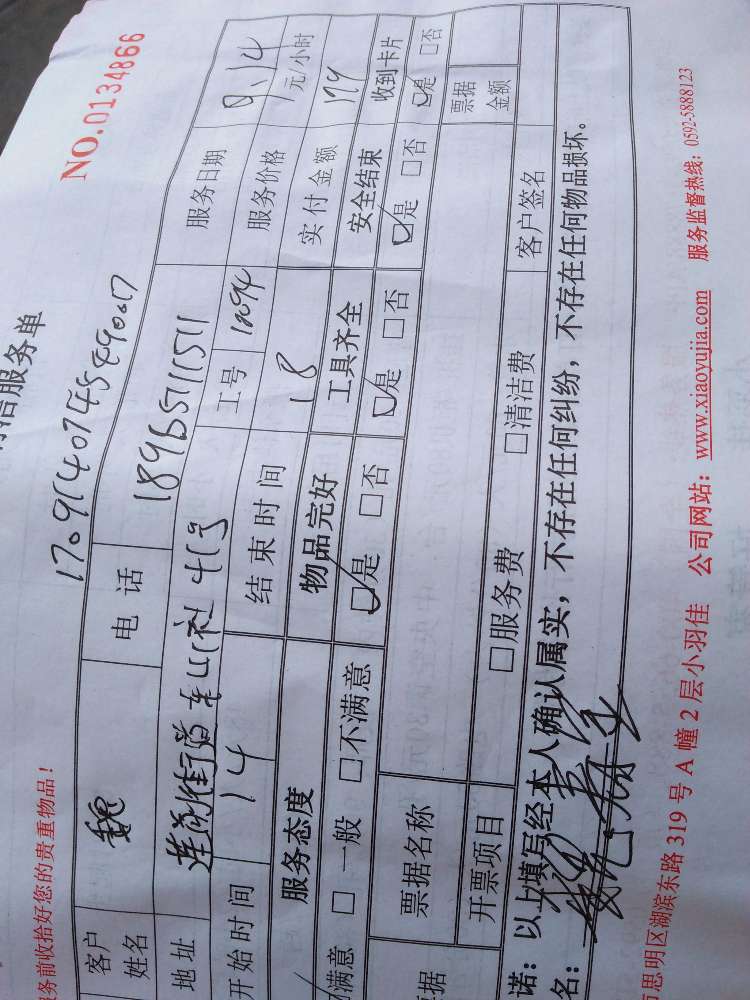 洁服务单
NO.0134866
170914074549007
务前收拾好您的贵重物品!
客户姓名 魏 电话 18965711511 服务日期 9.14
地址 莲前街道 东山社 41号 工号 12094 服务价格 元/小时
开始时间 14 结束时间 18 实付金额 179
服务态度 物品完好 工具齐全 安全结束 收到卡片
满意 □一般 □不满意 ☑是 □否 ☑是 □否 ☑是 □否 ☑是 □否
票据名称 票据金额
据 开票项目 □服务费 □清洁费 客户签名
诺:以上填写经本人确认属实,不存在任何纠纷,不存在任何物品损坏。
名:
思明区湖滨东路 319 号 A 幢 2 层小羽佳 公司网站:www.xiaoyujia.com 服务监督热线:0592-5888123